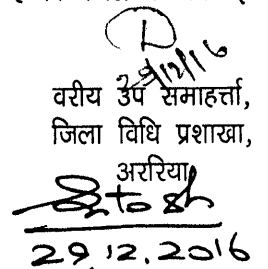 D
29/12/16
वरीय उप समाहर्त्ता,
जिला विधि प्रशाखा,
अररिया
29.12.2016